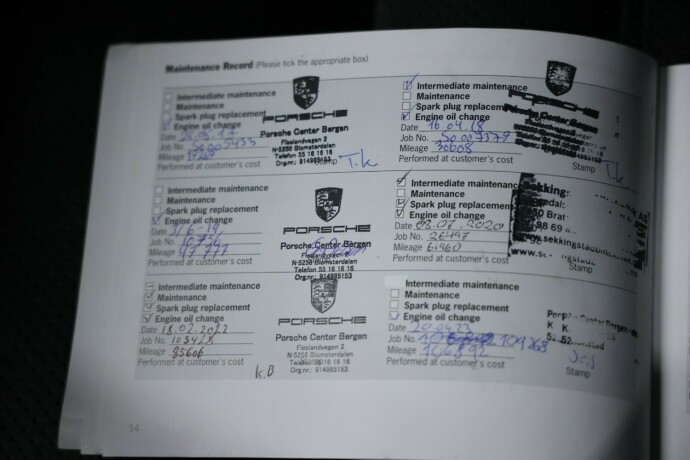 Maintenance Record (Please tick the appropriate box)
Intermediate maintenance
Maintenance
Spark plug replacement
Engine oil change
Date
Job No. S0005433
Mileage
Performed at customer's cost
PORSCHE
Porsche Center Bergen
Fleslandvegen 2
N-5258 Blomsterdalen
Telefon 55 16 16 16
Org.nr.: 914985153
Stamp T.k
Intermediate maintenance
Maintenance
Spark plug replacement
Engine oil change
Date 16.04.18
Job No. S0007379
Mileage 30608
Performed at customer's cost
PORSCHE
Stamp
T.k
Intermediate maintenance
Maintenance
Spark plug replacement
Engine oil change
Date
Job No. 10736
Mileage 47777
Performed at customer's cost
PORSCHE
Porsche Center Bergen
Fleslandvegen 2
N-5258 Blomsterdalen
Telefon 55 16 16 16
Org.nr.: 914985153
Intermediate maintenance
Maintenance
Spark plug replacement
Engine oil change
Date 08.07.2020
Job No. 26497
Mileage 61960
Performed at customer's cost
Stamp
Intermediate maintenance
Maintenance
Spark plug replacement
Engine oil change
Date 18.02.2022
Job No. 103428
Mileage 85606
Performed at customer's cost
PORSCHE
Porsche Center Bergen
Fleslandvegen 2
N-5258 Blomsterdalen
Telefon 55 16 16 16
Org.nr.: 914985153
K.B
Intermediate maintenance
Maintenance
Spark plug replacement
Engine oil change
Date 20.04.23
Job No. 109268
Mileage 106892
Performed at customer's cost
Stamp
14